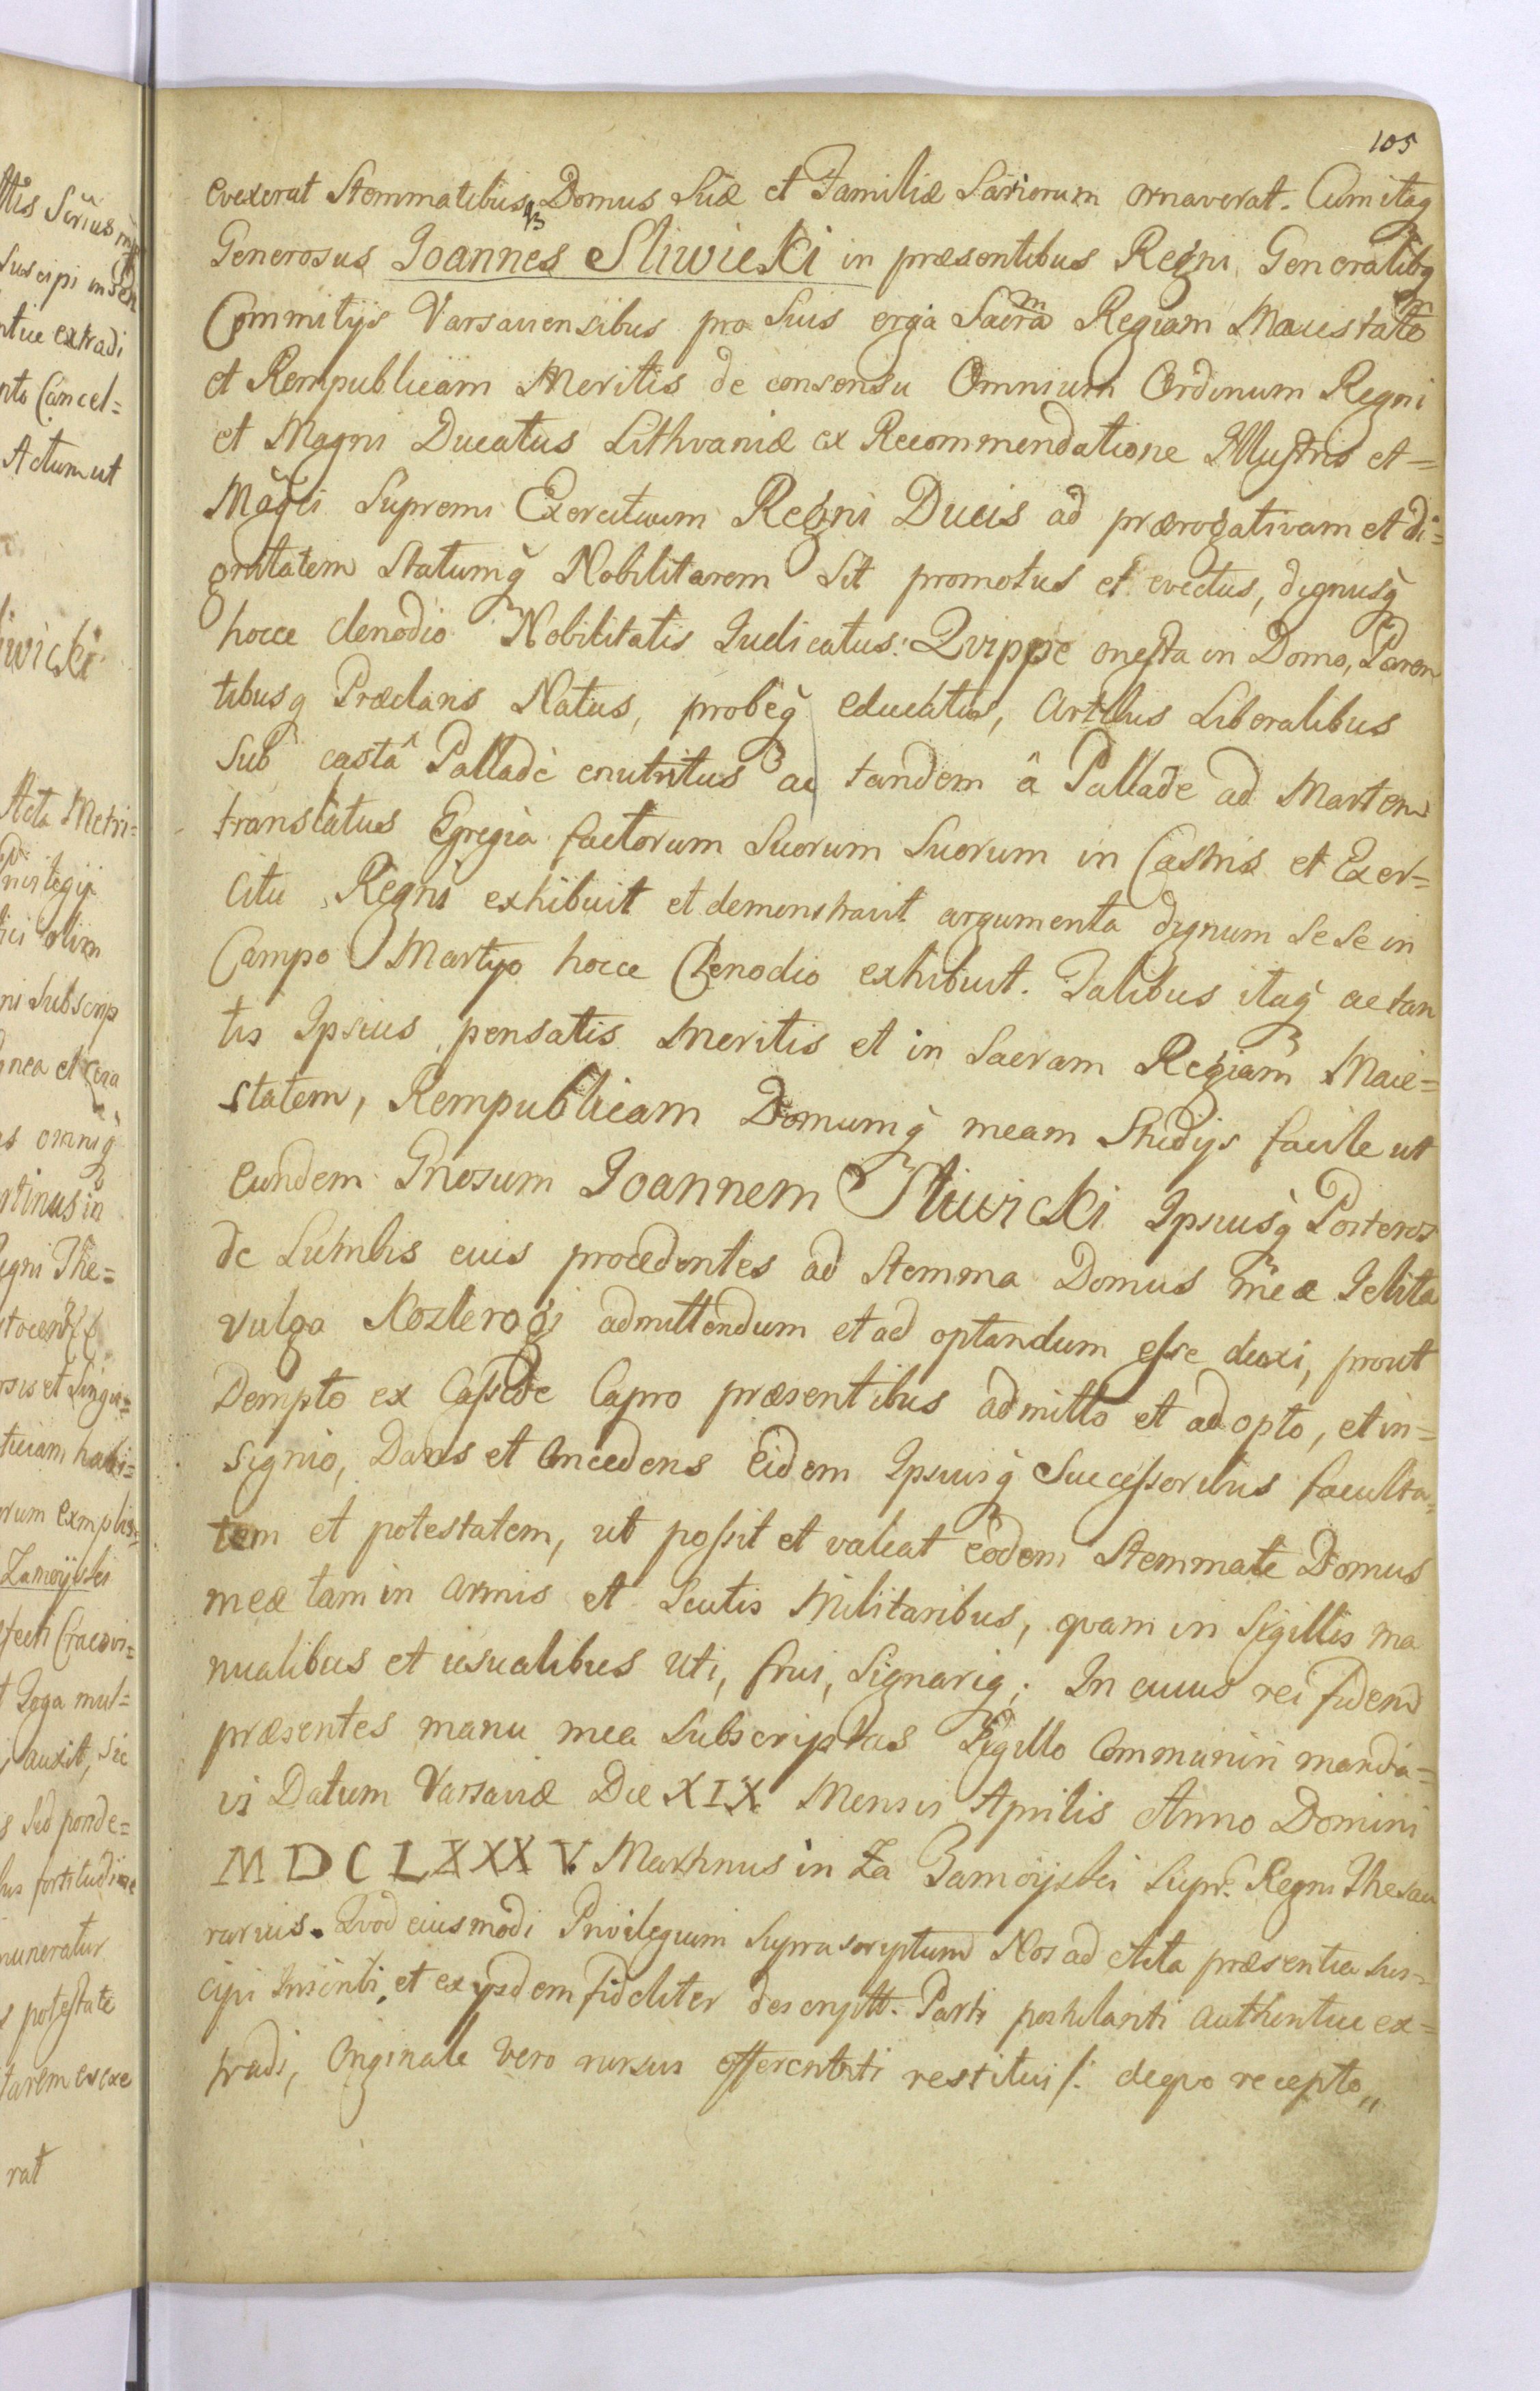 105
evexerat Stemmatibusq Domus Suæ et Familiæ Sariorum ornaverat. Cum itaq
Generosus Joannes Sliwicki in præsentibus Regni Generalibq
Commitijs Varsaviensibus pro Suis erga Sacra͞m Regiam Maiestate͞m
et Rempublicam Meritis de consensu Omnium Ordinum Regni
et Magni Ducatus Lithvaniæ ex Recommendatione Illustris et=
Mag̃ci Supremi Exercituum Regni Ducis ad prærogativam et di=
gnitatem Statumq̃ Nobilitarem Sit promotus et evectus, dignusq̃
hocce clenodio Nobilitatis Judicatus: Qvippe onesta in Domo, Paren
tibusq Præclaris Natus, probeq̃ educatus, Artibus Liberalibus
Sub castâ Palladè enutritus ac tandem â Pallade ad Martem
translatus Egregia factorum Suorum Suorum in Castris et Exer=
citu Regni exhibuit et demonstravit argumenta dignum Se Se in
Campo Martyo hocce Clenodio exhibuit. Talibus itaq̃ ac tan
tis Ipsius pensatis Meritis et in Sacram Regiam Maie=
statem, Rempublicam Domumq̃ meam Studijs facile ut
eundem Gnosum Joannem Sliwicki Ipsiusq̃ Posteros
de Lumbis eius procedentes ad Stemma Domus meæ Jelita
vulgo Kozlerogi admittendum et ad optandum esse duxi, prout
Dempto ex Casside Capro præsentibus admitto et adopto, et in=
signio, Dans et Concedens Eidem Ipsiusq̃ Successoribus faculta=
tem et potestatem, ut possit et valeat eodem Stemmate Domus
meæ tam in armis et Scutis Militaribus, qvam in Sigillis ma
nualibus et usualibus uti, frui, Signariq; In cuius rei fidem
præsentes manu mea Subscriptas Sigillo Communiri manda=
vi Datum Varsaviæ Die XIX Mensis Aprilis Anno Domini
MDCLXXXV. Martinus in Za Zamoyski Supr. Regni Thesau
rarius. Qvod eiusmodi Privilegium Suprascriptum Nos ad Acta præsentia Sus=
cipi Inscribi, et ex ijsdem fideliter descriptt. Parti postulanti authentice ex=
tradi, Originale vero rursus offerenti restitui /: de qvo recepto„